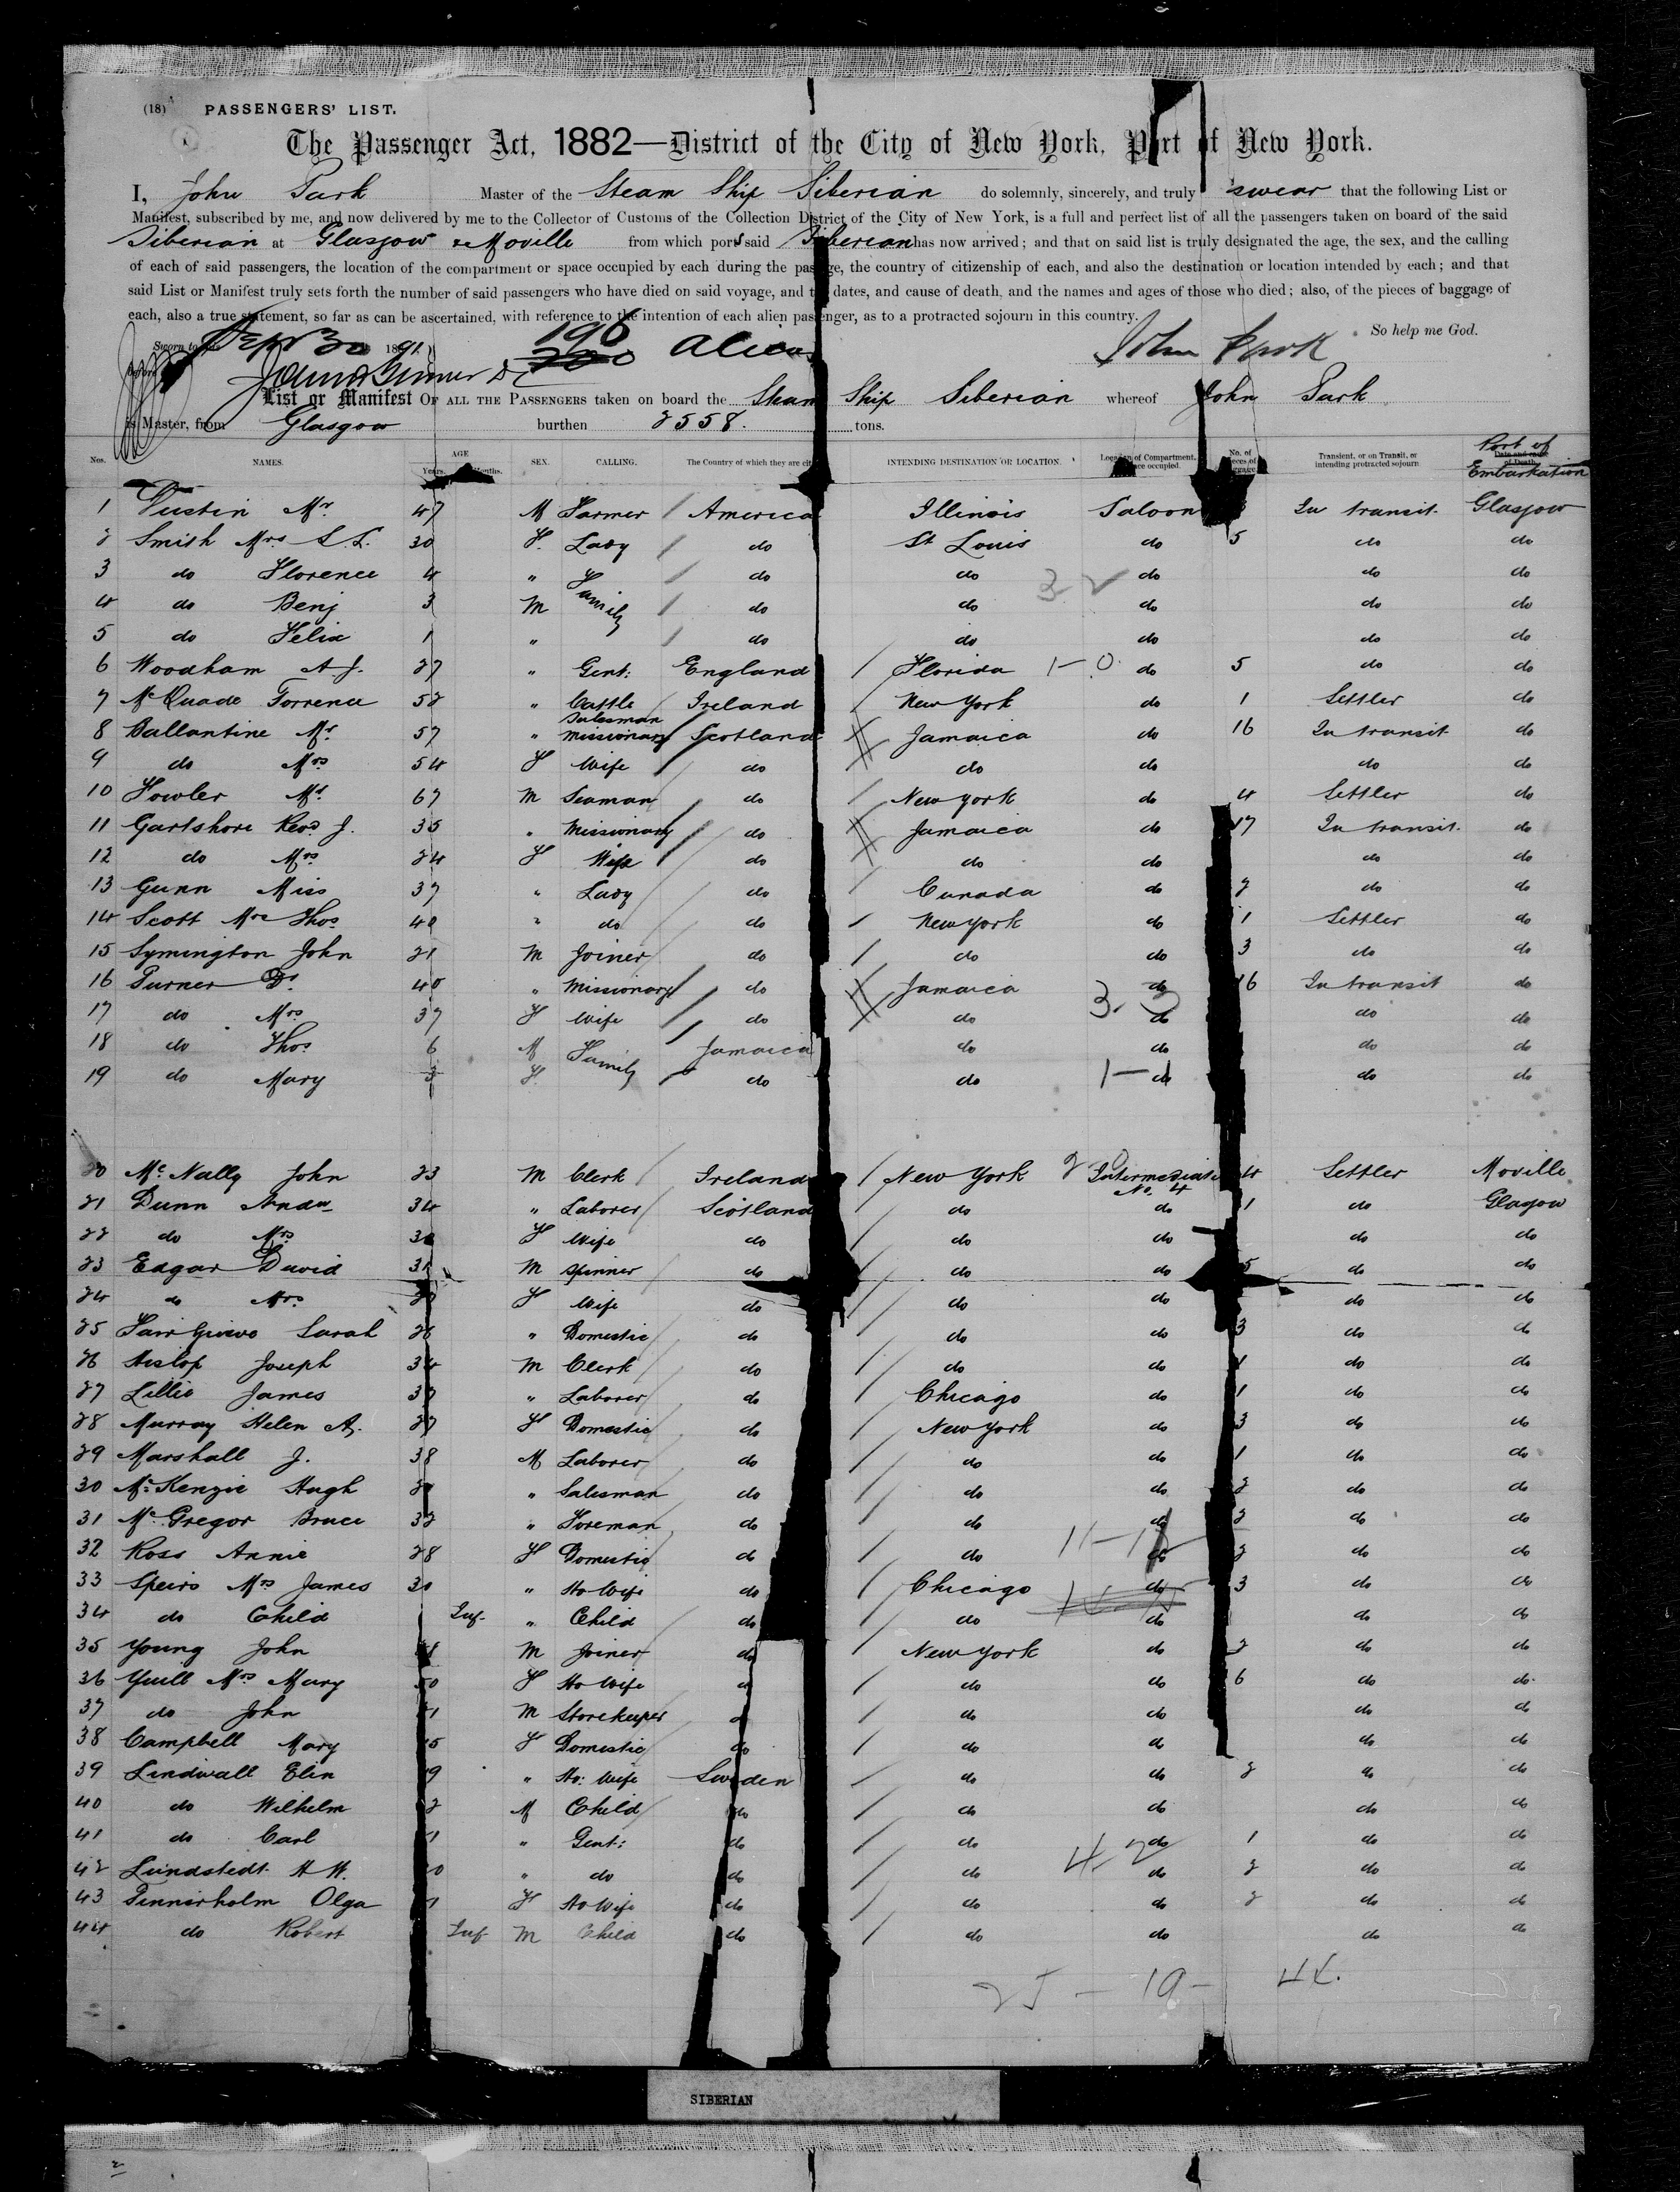 (18) PASSENGERS' LIST.
The Passenger Act, 1882—District of the City of New York, Port of New York.
I, John Park Master of the Steam Ship Siberian do solemnly, sincerely, and truly swear that the following List or
Manifest, subscribed by me, and now delivered by me to the Collector of Customs of the Collection District of the City of New York, is a full and perfect list of all the passengers taken on board of the said
Siberian at Glasgow & Moville from which port s said Siberian has now arrived; and that on said list is truly designated the age, the sex, and the calling
of each of said passengers, the location of the compartment or space occupied by each during the passage, the country of citizenship of each, and also the destination or location intended by each; and that
said List or Manifest truly sets forth the number of said passengers who have died on said voyage, and the dates, and cause of death, and the names and ages of those who died; also, of the pieces of baggage of
each, also a true statement, so far as can be ascertained, with reference to the intention of each alien passenger, as to a protracted sojourn in this country.
So help me God.
Sworn to 30 1891 196 200 Aliens John Park
List or Manifest OF ALL THE PASSENGERS taken on board the Steam Ship Siberian whereof John Park
is Master, from Glasgow burthen 2558 tons.
Nos. NAMES. AGE Years. Months. SEX. CALLING. The Country of which they are citi INTENDING DESTINATION OR LOCATION. Location of Compartment, space occupied. No. of pieces of baggage Transient, or on Transit, or intending protracted sojourn Port of Embarkation
1 Mr. 47 M Farmer America Illinois Saloon In transit. Glasgow
2 Smith Mrs S.L. 30 F. Lady do St Louis do 5 do do
3 do Florence 4 " Family do do 3 2 do do do
4 do Benj 3 M do do do do do
5 do Felix 1 " do do do do do
6 Woodham A.J. 27 " Gent: England Florida 1-0 do 5 do do
7 McQuade Torrence 52 " Cattle Salesman Ireland New York do 1 Settler do
8 Ballantine Mr. 57 " Missionary Scotland Jamaica do 16 In transit do
9 do Mrs 54 F Wife do do do do do
10 Fowler Mr. 67 M Seaman do New York do 4 Settler do
11 Gartshore Revd J. 35 " Missionary do Jamaica do 17 In transit. do
12 do Mrs. 24 F Wife do do do do do
13 Gunn Miss 37 " Lady do Canada do 2 do do
14 Scott Mrs Thos 40 " do do New York do 1 Settler do
15 Symington John 21 M Joiner do do do 3 do do
16 Turner Dr. 40 " Missionary do Jamaica do 16 In transit do
17 do Mrs 37 F Wife do do 3. 3 do do do
18 do Thos 6 M Family Jamaica do do do do
19 do Mary 3 F. do do 1-1 do do do
20 McNally John 23 M Clerk Ireland New York 2 0 Intermediate No. 4 4 Settler Moville
21 Dunn Andw 34 " Laborer Scotland do do 1 do Glasgow
22 do Mrs F Wife do do do do do
23 Edgar David 31 M Spinner do do do 5 do do
24 do Mrs. F Wife do do do do do
25 Sarah " Domestic do do do 3 do do
26 Hislop Joseph 34 M Clerk do do do 1 do do
27 Lillie James " Laborer do Chicago do 1 do do
28 Murray Helen A. 27 F Domestic do New York do 3 do do
29 Marshall J. 38 M Laborer do do do 1 do do
30 McKenzie Hugh " Salesman do do do 2 do do
31 McGregor Bruce 32 " Foreman do do do 2 do do
32 Ross Annie 28 F Domestic do do 11-1 do 2 do do
33 Speirs Mrs James 30 " Ho Wife do Chicago do 3 do do
34 do Child Inf. " Child do do do do do
35 Young John M Joiner do New York do 2 do do
36 Yuill Mrs Mary F Ho Wife do do 6 do do.
37 do John M Storekeeper do do do do
38 Campbell Mary F Domestic do do do do do
39 Lindwall Elin " Ho: Wife Sweden do do 2 do do
40 do Wilhelm M Child do do do do do
41 do Carl " Gent: do do do 1 do do
42 Lundstedt H W. " do do do 4 2 do 2 do do
43 Tennerholm Olga F Ho Wife do do do 2 do do
44 do Robert Inf M Child do do do do do
25 - 19 - 44.
SIBERIAN